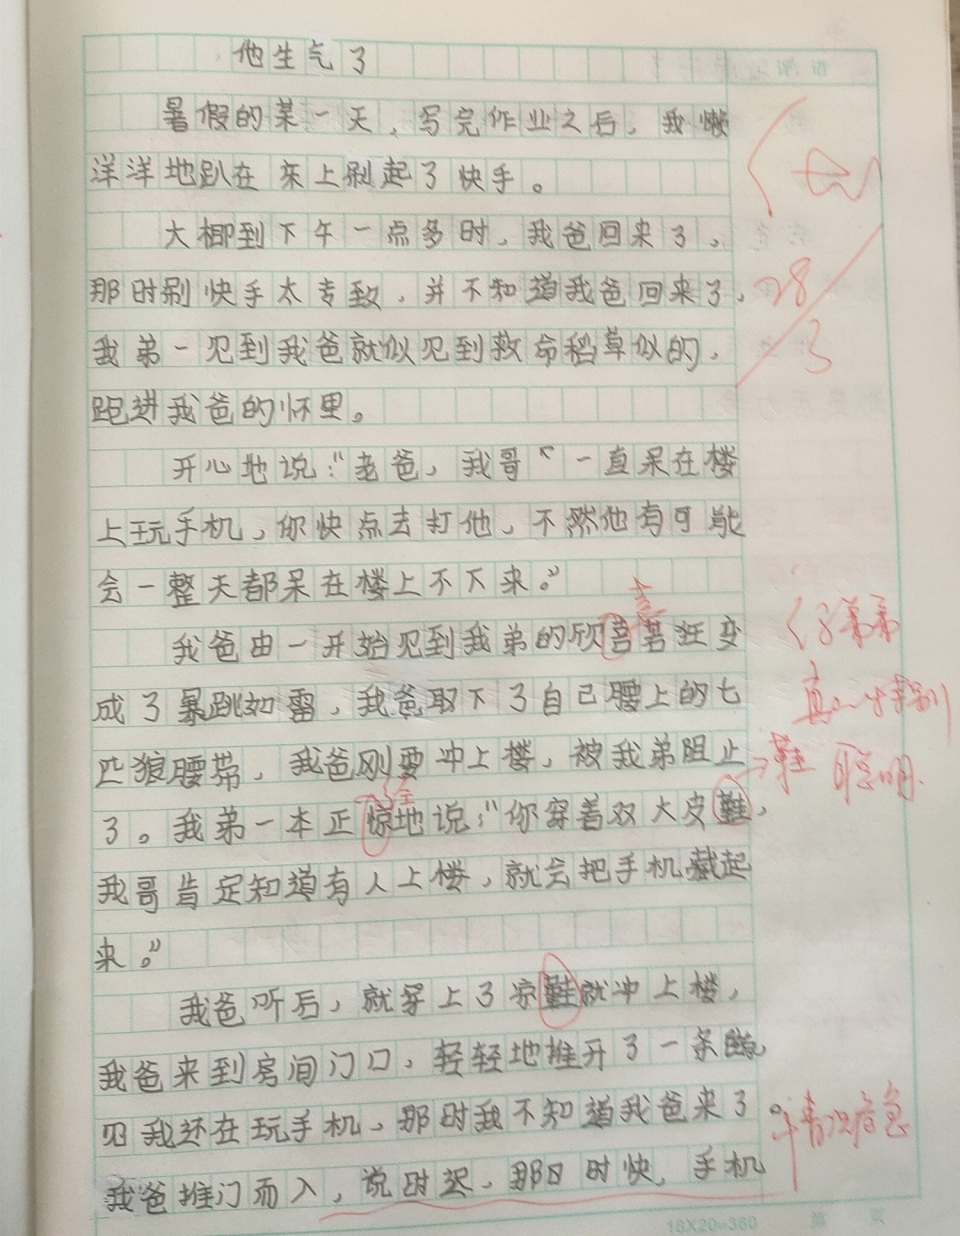 他生气了
评语
暑假的某一天，写完作业之后，我懒
洋洋地趴在床上刷起了快手。
大概到下午一点多时，我爸回来了，
那时刷快手太专致，并不知道我爸回来了，
28
3
我弟一见到我爸就似见到救命稻草似的，
跑进我爸的怀里。
开心地说：“老爸，我哥一直呆在楼
上玩手机，你快点去打他，不然他有可能
会一整天都呆在楼上不下来。”
喜
我爸由一开始见到我弟的欣
狂变
弟弟
成了暴跳如雷，我爸取下了自己腰上的七
真
特别
匹狼腰带，我爸刚要冲上楼，被我弟阻止
鞋
聪明.
经
了。我弟一本正惊地说：“你穿着双大皮鞋，
我哥肯定知道有人上楼，就会把手机藏起
来。”
我爸听后，就穿上了凉鞋就冲上楼，
我爸来到房间门口，轻轻地推开了一条
见我还在玩手机，那时我不知道我爸来了。
情况危急
我爸推门而入，说时迟，那时快，手机
18X20=360
第 页